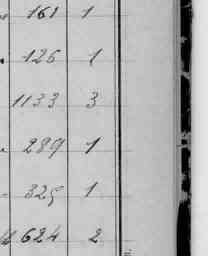 161 1
126 1
1133 3
289 1
325 1
624 2